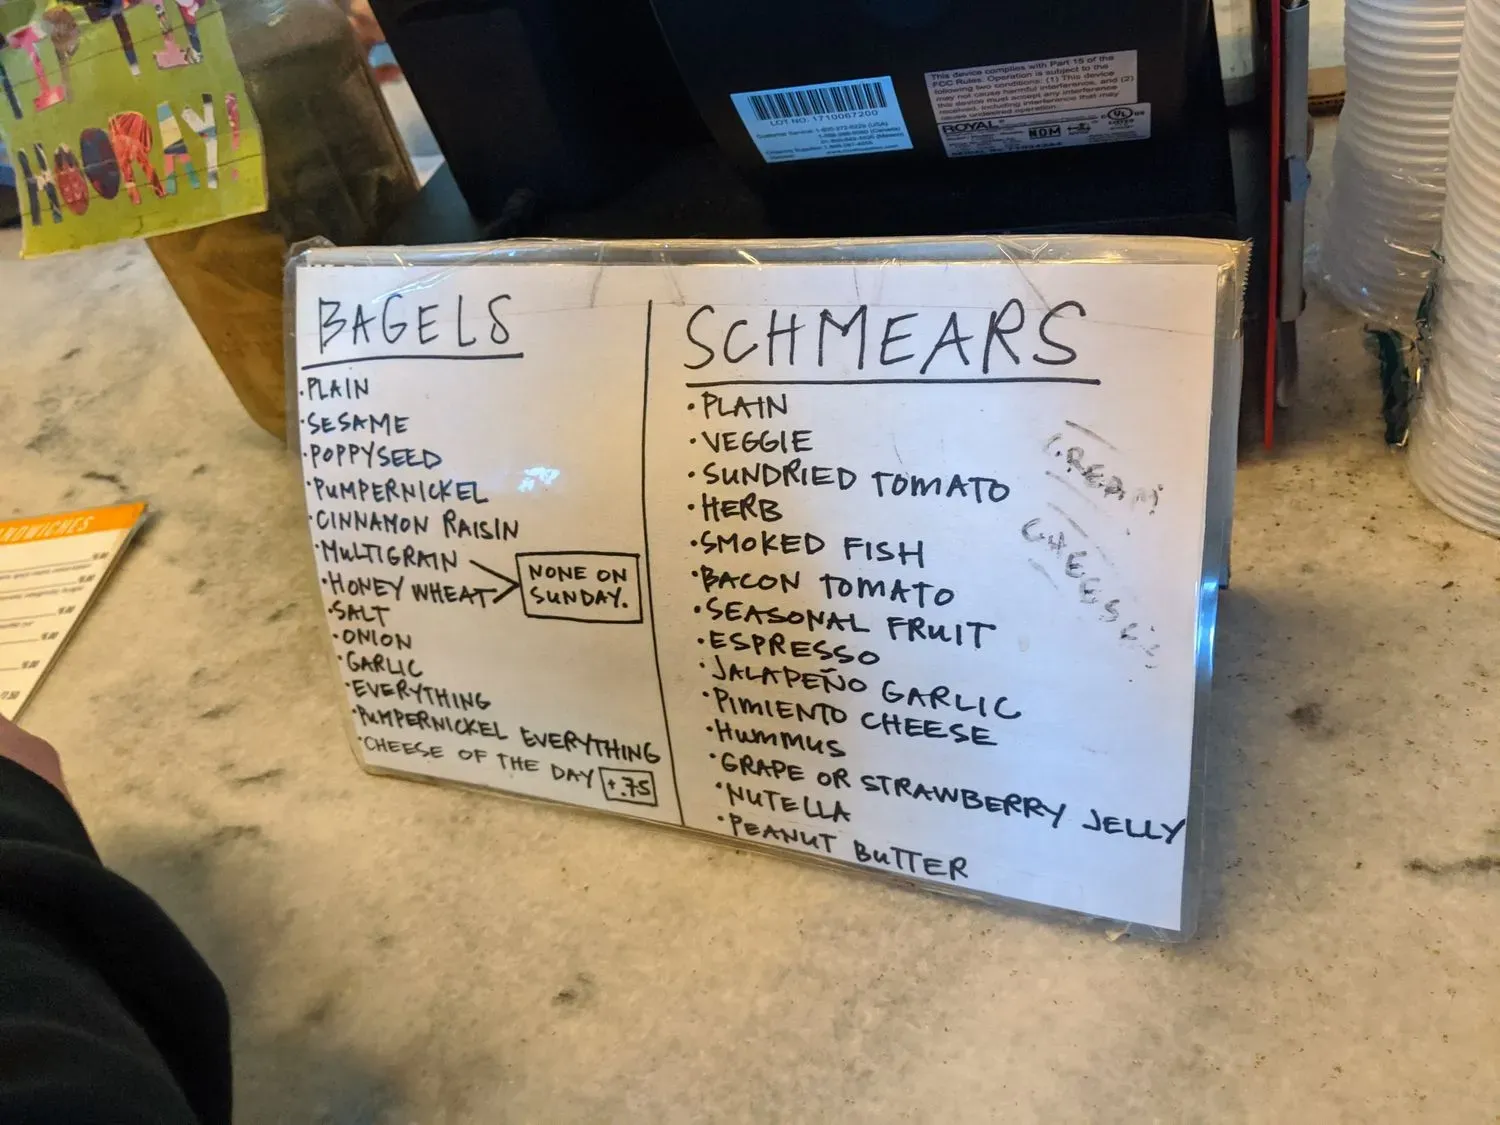 HOORAY!
LOT NO. 1710067200
This device complies with Part 15 of the
FCC Rules. Operation is subject to the
following two conditions: (1) This device
may not cause harmful interference, and (2)
this device must accept any interference
received, including interference that may
cause undesired operation.
ROYAL
NOM
BAGELS
• PLAIN
• SESAME
• POPPYSEED
• PUMPERNICKEL
• CINNAMON RAISIN
• MULTIGRAIN
• HONEY WHEAT
NONE ON
SUNDAY.
• SALT
• ONION
• GARLIC
• EVERYTHING
• PUMPERNICKEL EVERYTHING
• CHEESE OF THE DAY +.75
SCHMEARS
• PLAIN
• VEGGIE
• SUNDRIED TOMATO
• HERB
• SMOKED FISH
• BACON TOMATO
• SEASONAL FRUIT
• ESPRESSO
• JALAPEÑO GARLIC
• PIMIENTO CHEESE
• HUMMUS
• GRAPE OR STRAWBERRY JELLY
• NUTELLA
• PEANUT BUTTER
CREAM
CHEESES